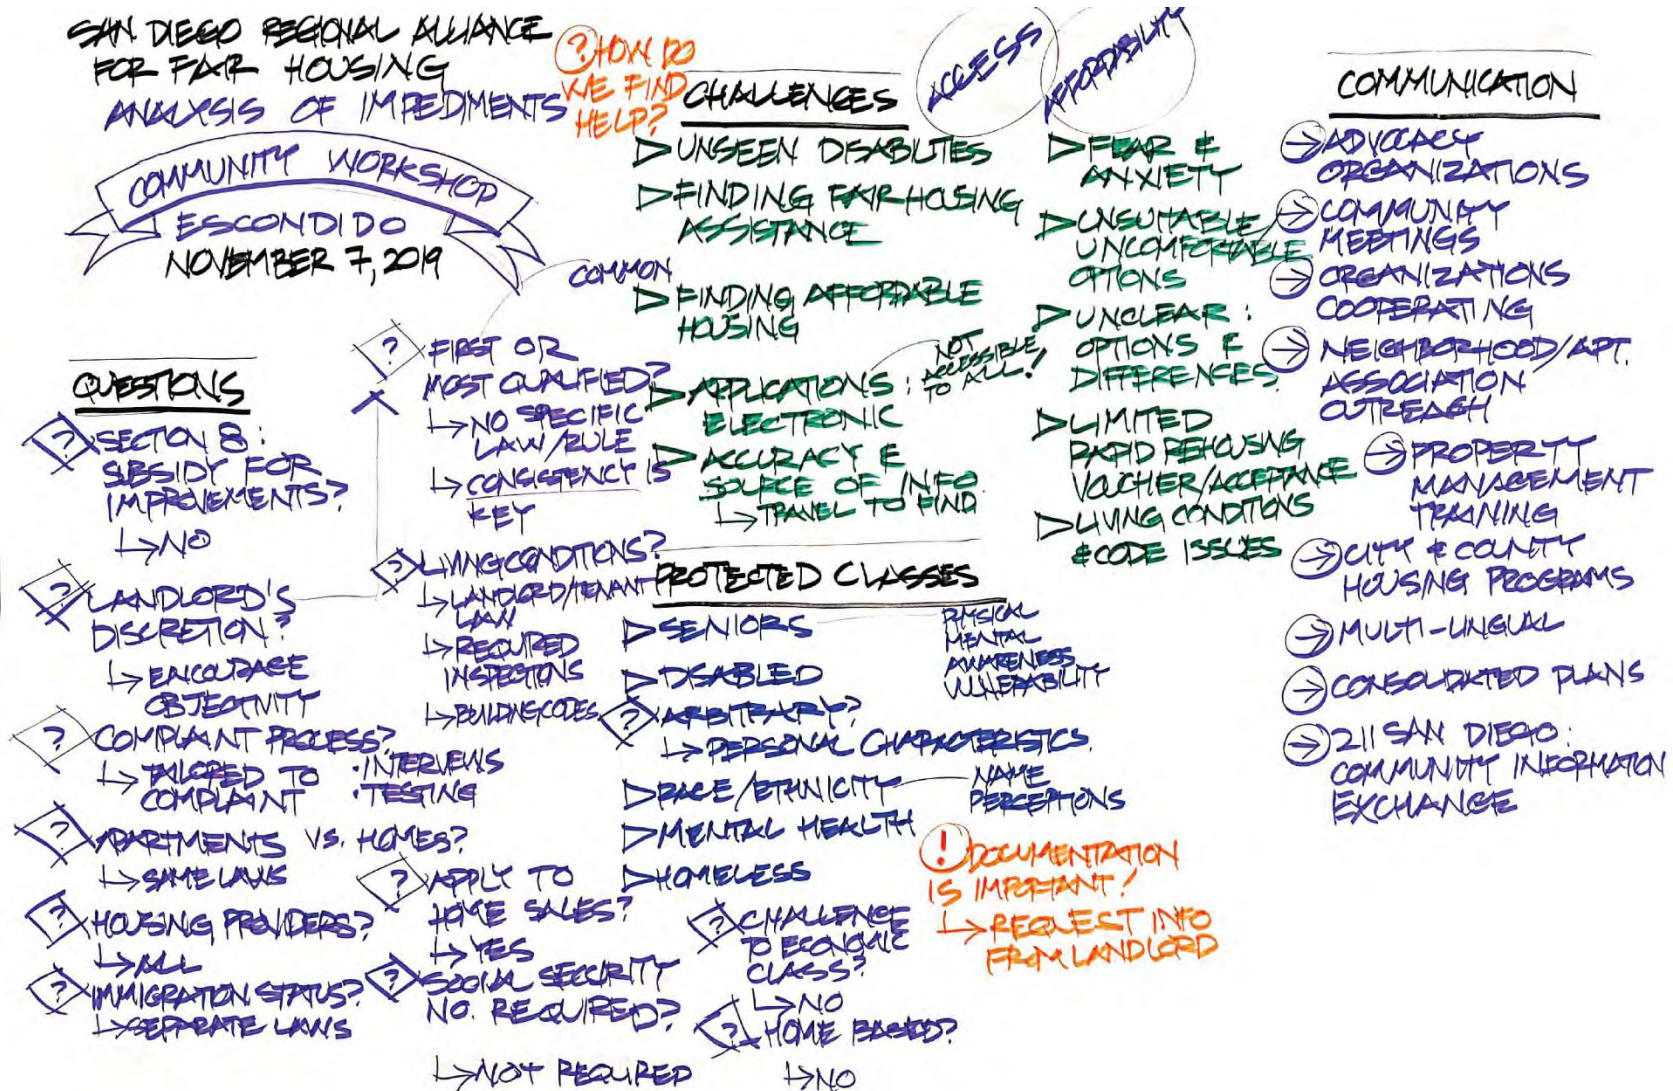 SAN DIEGO REGIONAL ALLIANCE
FOR FAIR HOUSING
ANALYSIS OF IMPEDIMENTS
COMMUNITY WORKSHOP
ESCONDIDO
NOVEMBER 7, 2019
? HOW DO
WE FIND
HELP?
QUESTIONS
? SECTION 8:
SUBSIDY FOR
IMPROVEMENTS?
↳ NO
? LANDLORD'S
DISCRETION?
↳ ENCOURAGE
OBJECTIVITY
? COMPLAINT PROCESS?
↳ TAILORED TO
COMPLAINT
• INTERVIEWS
• TESTING
? APARTMENTS VS. HOMES?
↳ SAME LAWS
? HOUSING PROVIDERS?
↳ ALL
? IMMIGRATION STATUS?
↳ SEPARATE LAWS
COMMON
? FIRST OR
MOST QUALIFIED?
↳ NO SPECIFIC
LAW/RULE
↳ CONSISTENCY IS
KEY
? LIVING CONDITIONS?
↳ LANDLORD/TENANT
LAW
↳ REQUIRED
INSPECTIONS
↳ BUILDING CODES
? APPLY TO
HOME SALES?
↳ YES
? SOCIAL SECURITY
NO. REQUIRED?
↳ NOT REQUIRED
CHALLENGES
▷ UNSEEN DISABILITES
▷ FINDING FAIR HOUSING
ASSISTANCE
▷ FINDING AFFORDABLE
HOUSING
▷ APPLICATIONS:
ELECTRONIC
NOT
ACCESSIBLE
TO ALL!
▷ ACCURACY &
SOURCE OF INFO
↳ TRAVEL TO FIND
ACCESS
AFFORDABILITY
▷ FEAR &
ANXIETY
▷ UNSUITABLE/
UNCOMFORTABLE
OPTIONS
▷ UNCLEAR:
OPTIONS &
DIFFERENCES
▷ LIMITED
RAPID REHOUSING
VOUCHER/ACCEPTANCE
▷ LIVING CONDITIONS
& CODE ISSUES
PROTECTED CLASSES
▷ SENIORS
▷ DISABLED
PHYSICAL
MENTAL
AWARENESS
VULNERABILITY
? ARBITRARY?
↳ PERSONAL CHARACTERISTICS.
▷ RACE/ETHNICITY
NAME
PERCEPTIONS
▷ MENTAL HEALTH
▷ HOMELESS
? CHALLENGE
TO ECONOMIC
CLASS?
↳ NO
? HOME BASED?
↳ NO
! DOCUMENTATION
IS IMPORTANT!
↳ REQUEST INFO
FROM LANDLORD
COMMUNICATION
→ ADVOCACY
ORGANIZATIONS
→ COMMUNITY
MEETINGS
→ ORGANIZATIONS
COOPERATING
→ NEIGHBORHOOD/APT.
ASSOCIATION
OUTREACH
→ PROPERTY
MANAGEMENT
TRAINING
→ CITY & COUNTY
HOUSING PROGRAMS
→ MULTI-LINGUAL
→ CONSOLIDATED PLANS
→ 211 SAN DIEGO:
COMMUNITY INFORMATION
EXCHANGE